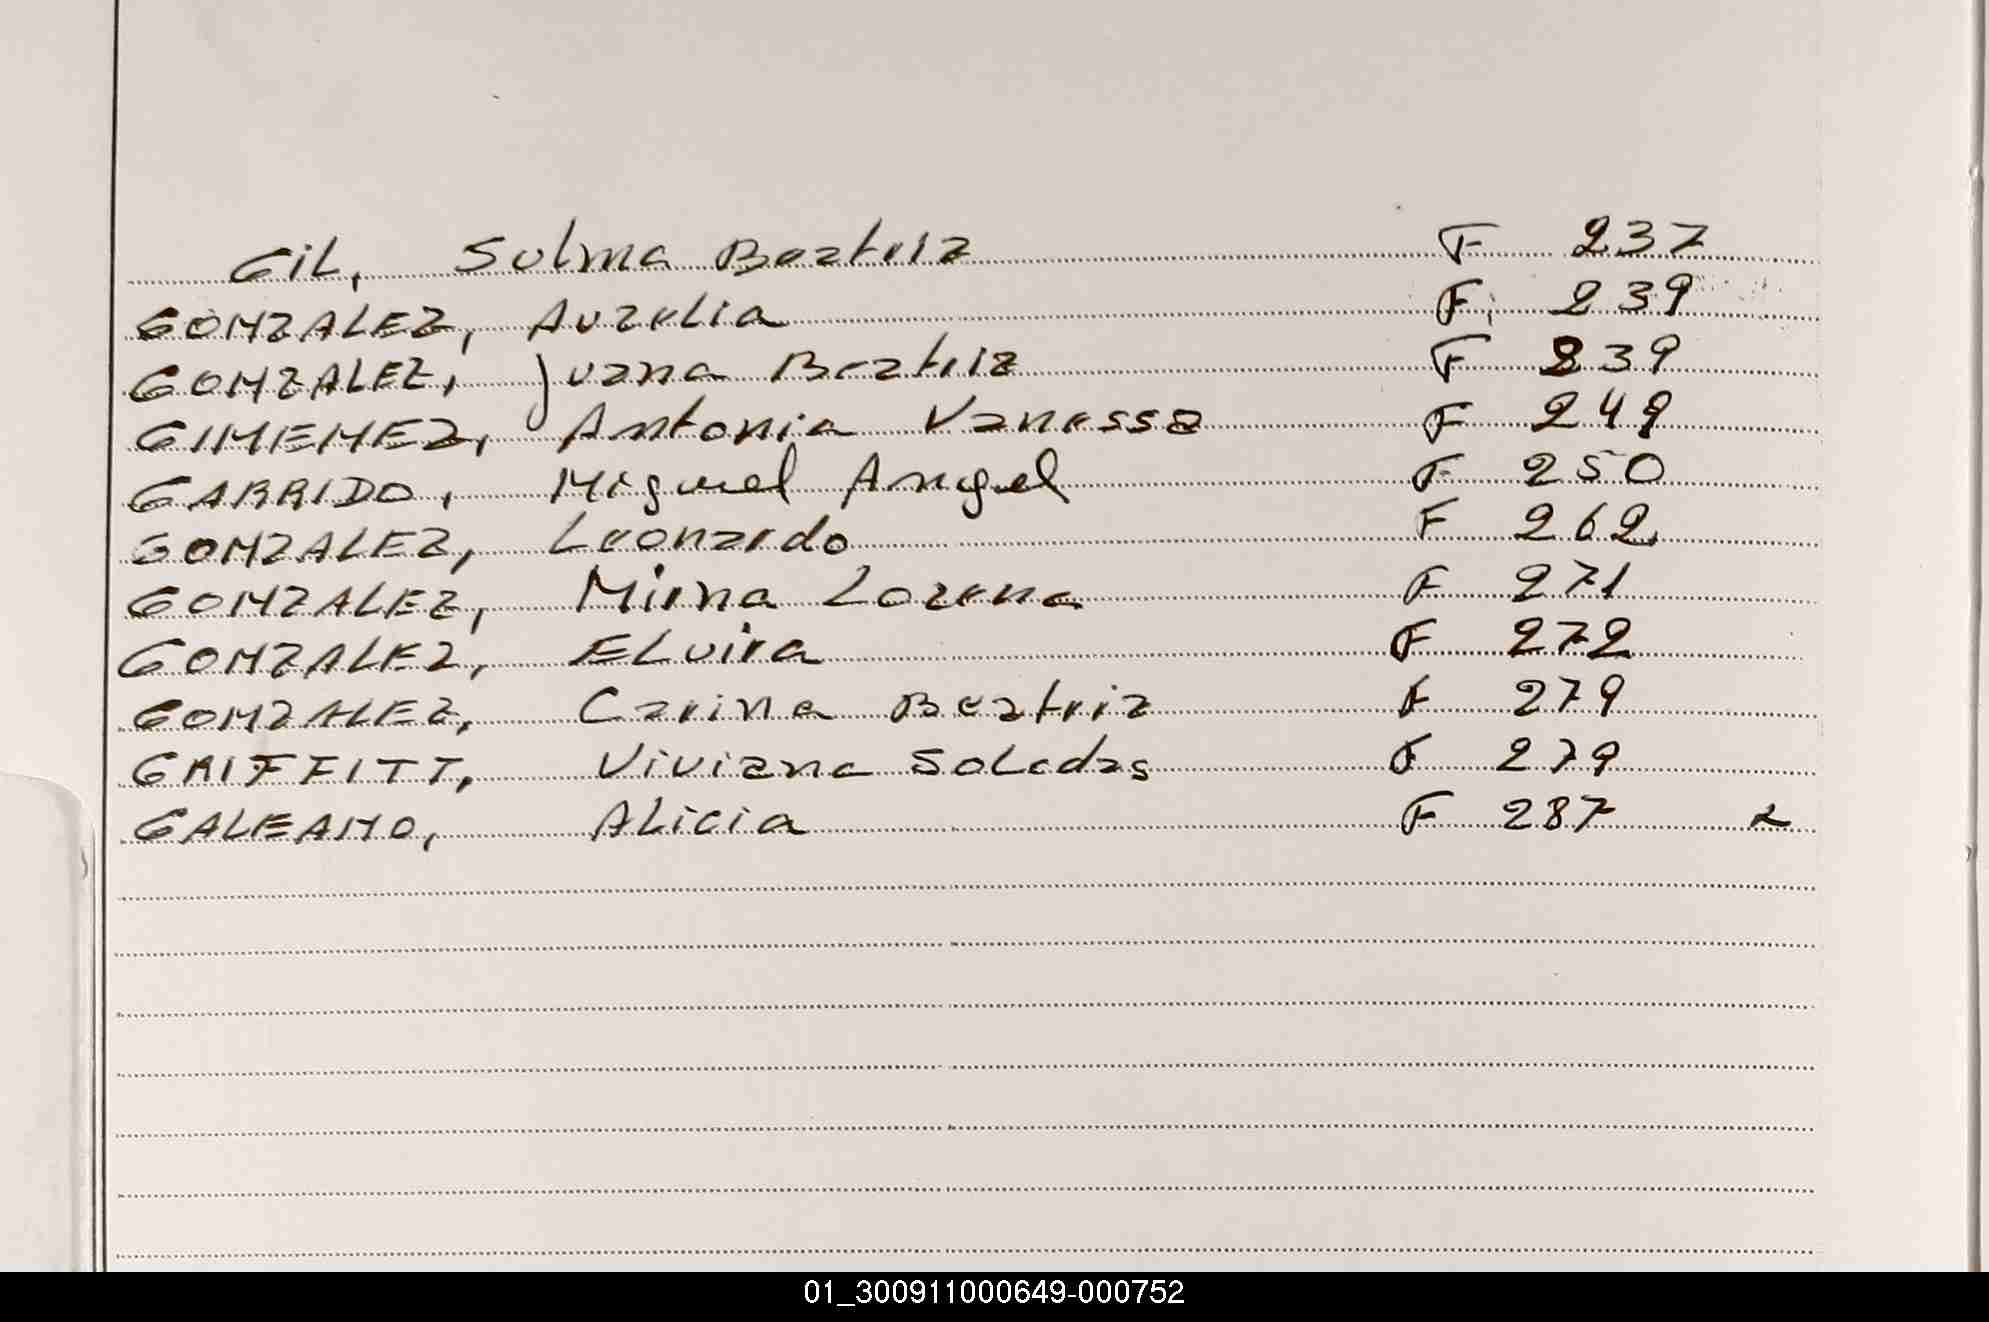 GIL, Sulma Beatriz F 237
GONZALEZ, Aurelia F 239
GONZALEZ, Juana Beatriz F 239
GIMENEZ, Antonia Vanessa F 249
GARRIDO, Miguel Angel F 250
GONZALEZ, Leonardo F 262
GONZALEZ, Mirna Lorena F 271
GONZALEZ, Elvira F 272
GONZALEZ, Carina Beatriz F 279
GRIFFITT, Viviana Soledas F 279
GALEANO, Alicia F 287
01_300911000649-000752